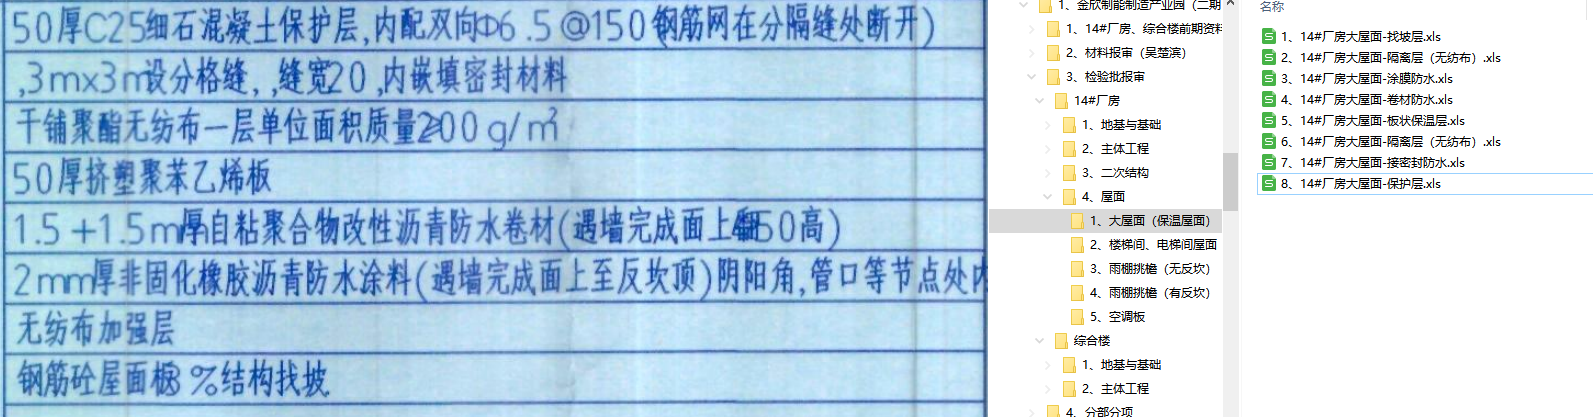 50厚C25细石混凝土保护层,内配双向Φ6.5@150(钢筋网在分隔缝处断开)
,3mx3m设分格缝,,缝宽20,内嵌填密封材料
干铺聚酯无纺布一层单位面积质量≥200g/m²
50厚挤塑聚苯乙烯板
1.5+1.5mm厚自粘聚合物改性沥青防水卷材(遇墙完成面上翻450高)
2mm厚非固化橡胶沥青防水涂料(遇墙完成面上至反坎顶)阴阳角,管口等节点处内
无纺布加强层
钢筋砼屋面板3%结构找坡
1、金欣制能制造产业园(二期
1、14#厂房、综合楼前期资料
2、材料报审(吴楚滨)
3、检验批报审
14#厂房
1、地基与基础
2、主体工程
3、二次结构
4、屋面
1、大屋面(保温屋面)
2、楼梯间、电梯间屋面
3、雨棚挑檐(无反坎)
4、雨棚挑檐(有反坎)
5、空调板
综合楼
1、地基与基础
2、主体工程
4、分部分项
名称
1、14#厂房大屋面-找坡层.xls
2、14#厂房大屋面-隔离层(无纺布).xls
3、14#厂房大屋面-涂膜防水.xls
4、14#厂房大屋面-卷材防水.xls
5、14#厂房大屋面-板状保温层.xls
6、14#厂房大屋面-隔离层(无纺布).xls
7、14#厂房大屋面-接密封防水.xls
8、14#厂房大屋面-保护层.xls